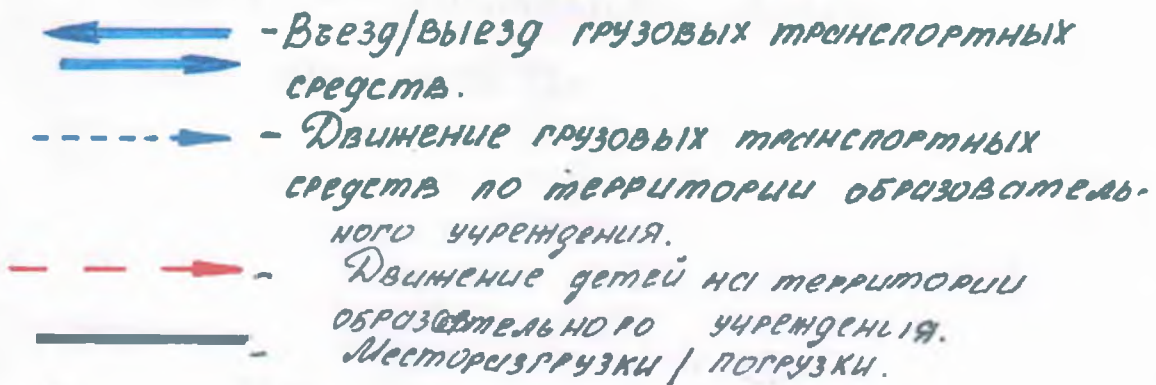 - Въезд/Выезд грузовых транспортных
средств.
- Движение грузовых транспортных
средств по территории образователь-
ного учреждения.
- Движение детей на территории
образовательного учреждения.
- Месторазгрузки / погрузки.